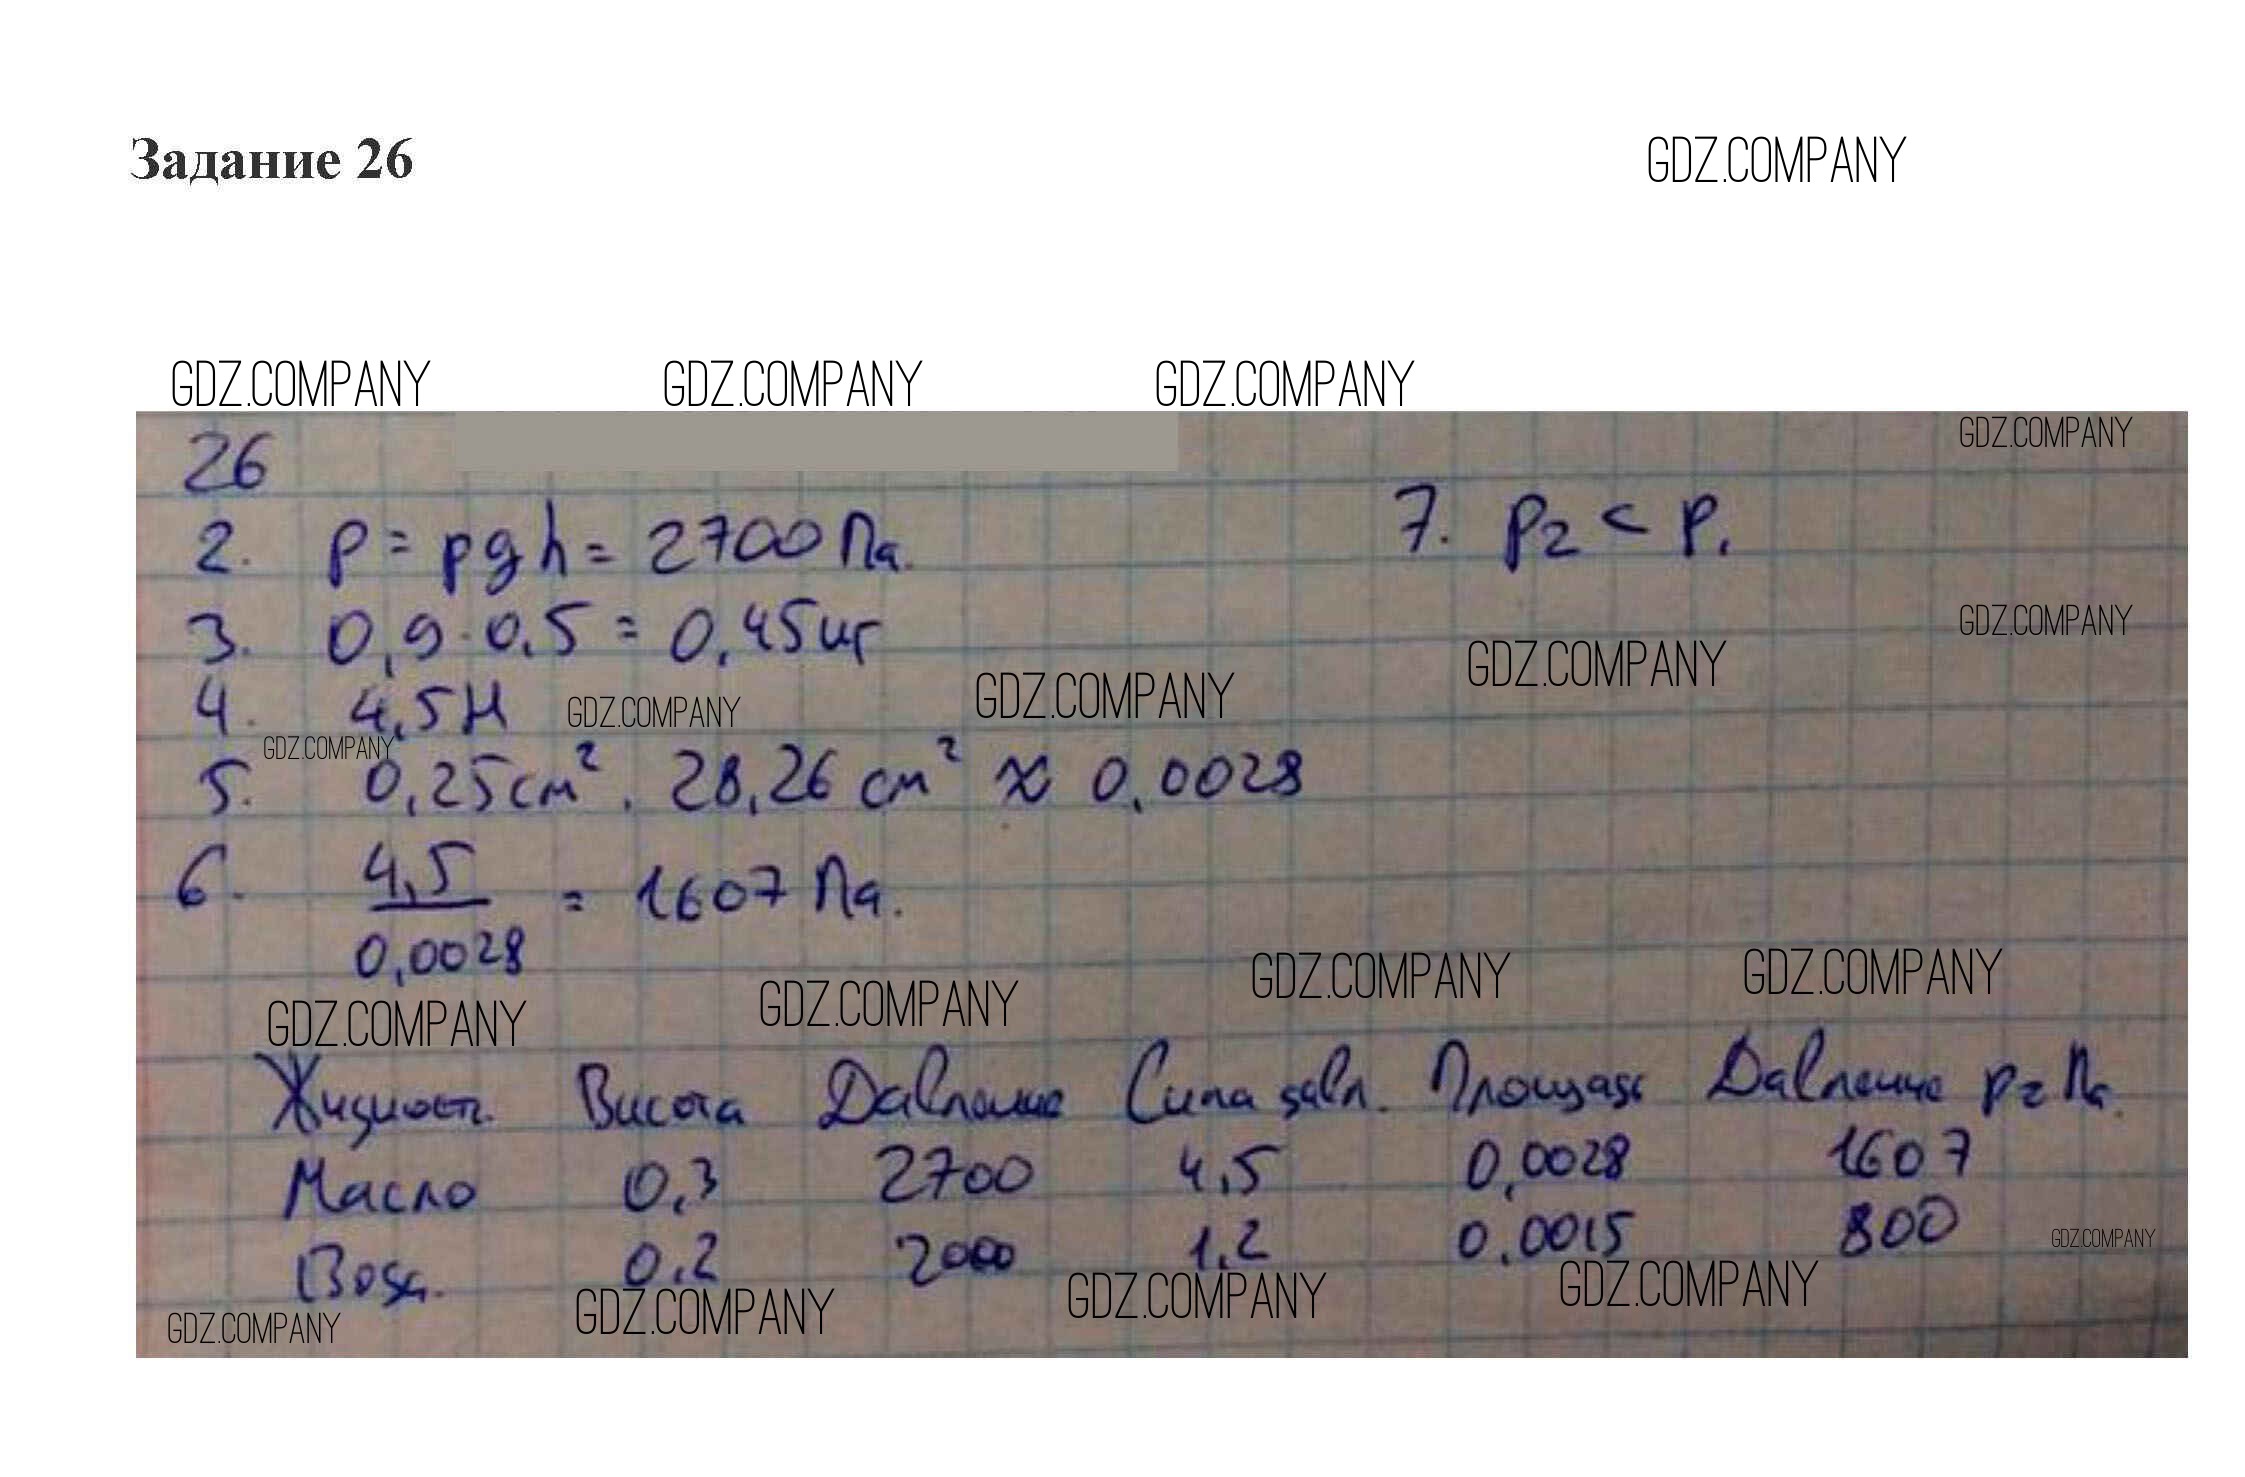 Задание 26
GDZ.COMPANY
GDZ.COMPANY GDZ.COMPANY GDZ.COMPANY
GDZ.COMPANY
26
2. p = ρgh = 2700 Па.
7. p₂ < p₁
3. 0,9 · 0,5 = 0,45 кг
GDZ.COMPANY
GDZ.COMPANY
4. 4,5 Н
GDZ.COMPANY GDZ.COMPANY
GDZ.COMPANY
5. 0,25 см² · 28,26 см² ≈ 0,0028
6. 4,5 / 0,0028 = 1607 Па.
GDZ.COMPANY GDZ.COMPANY GDZ.COMPANY GDZ.COMPANY
Жидкост. Висота Давление Сила давл. Площадь Давление p₂ Па.
Масло 0,3 2700 4,5 0,0028 1607
Вода. 0,2 2000 1,2 0,0015 800
GDZ.COMPANY
GDZ.COMPANY GDZ.COMPANY GDZ.COMPANY GDZ.COMPANY